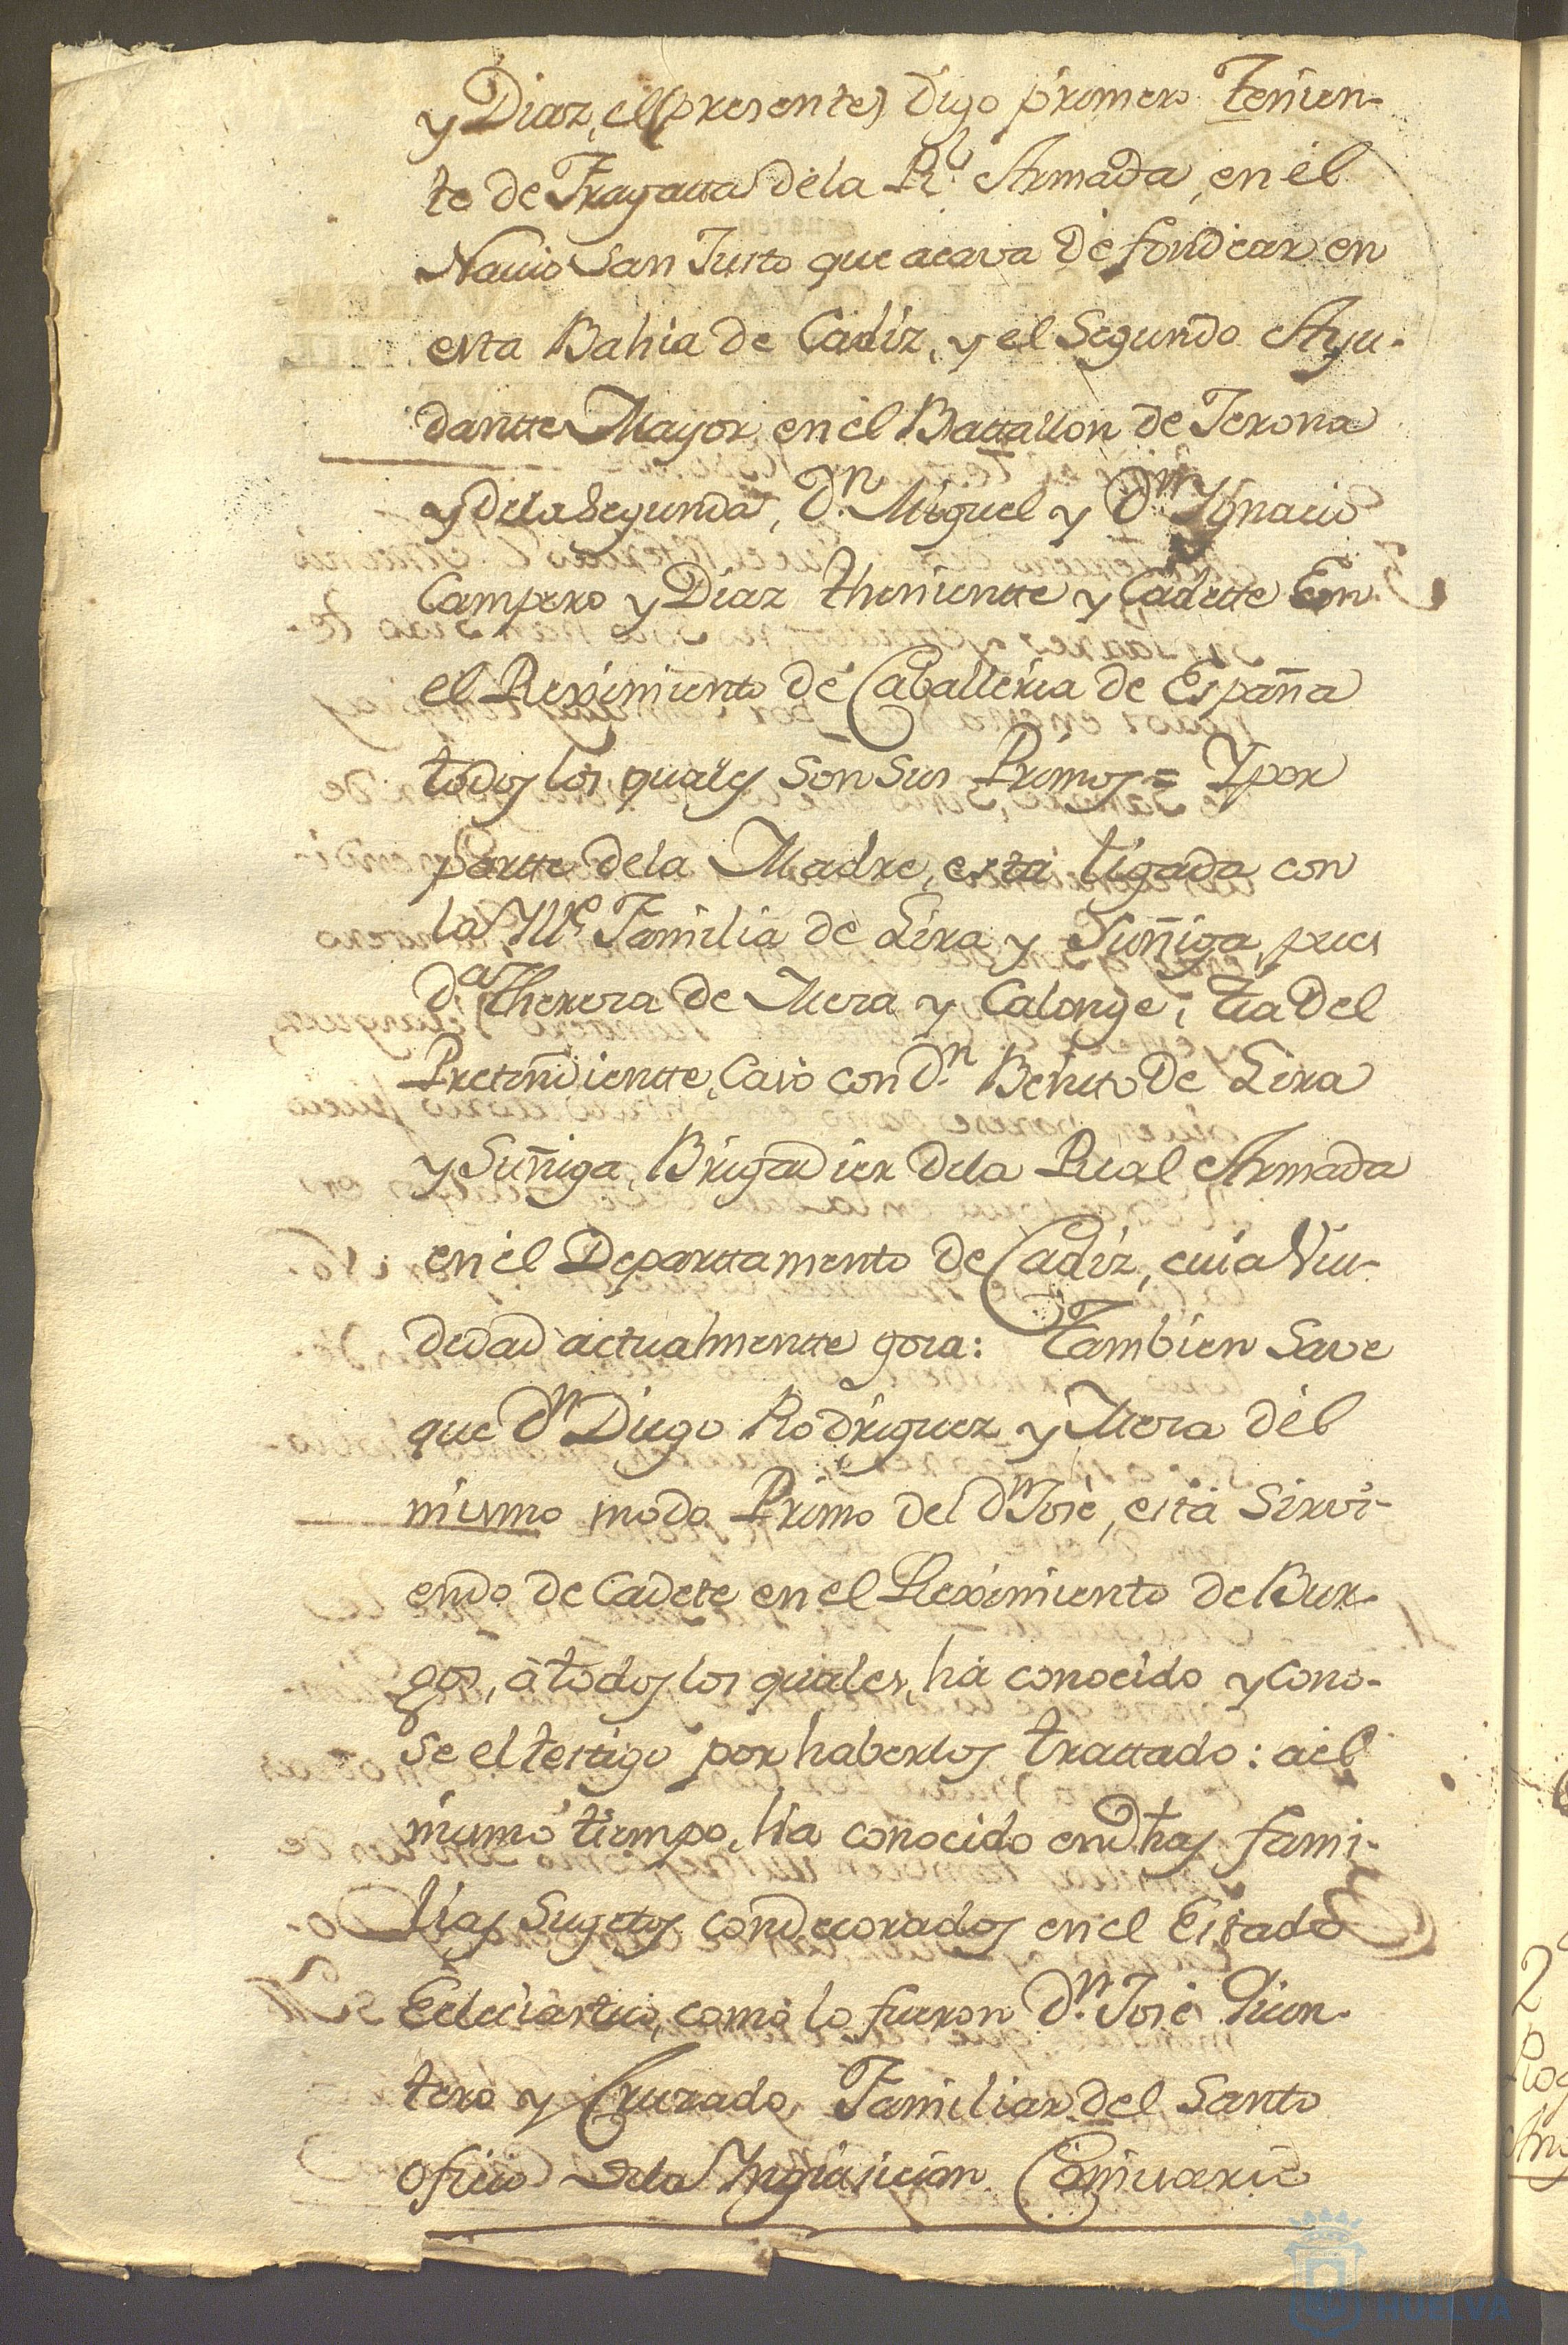 y Diaz, el (presente) digo primero Tenien-
te de Fragatta de la Rl. Armada, en el
Navio San Justo que acava de fondear en
esta Bahia de Cadiz, y el Segundo Ayu-
dantte Mayor en el Battallon de Jerona
y de la Segunda, Dn. Miguel y Dn. Ygnacio
Campero y Diaz theniente y Cadette En
el Reximiento de Caballeria de España
todos los quales son sus Primos = Y por
partte de la Madre, está ligada con
la Ylle. Familia de Lira y Suñiga, pues
Da. Theresa de Mera y Calonge, tia del
Pretendientte, Casó con Dn. Benito de Lira
y Suñiga, Brigadier de la Real Armada
en el Departtamento de Cadiz, cuia Viu-
dedad actualmentte goza: Tambien Save
que Dn Diego Rodriguez y Mera del
mismo modo Primo del Dn José, está Sirvi-
endo de Cadete en el Reximiento de Bur-
gos, á todos los quales, ha conocido y cono-
se el testigo por haberlos trattado: a el
mismo tiempo, ha conocido en dhas fami-
lias Sugetos condecorados en el Estado
Eclesiastico, como lo fueron Dn. José Quin-
tero y Cruzado, Familiar del Santo
oficio de la Ynquisicion Comisario
HUELVA